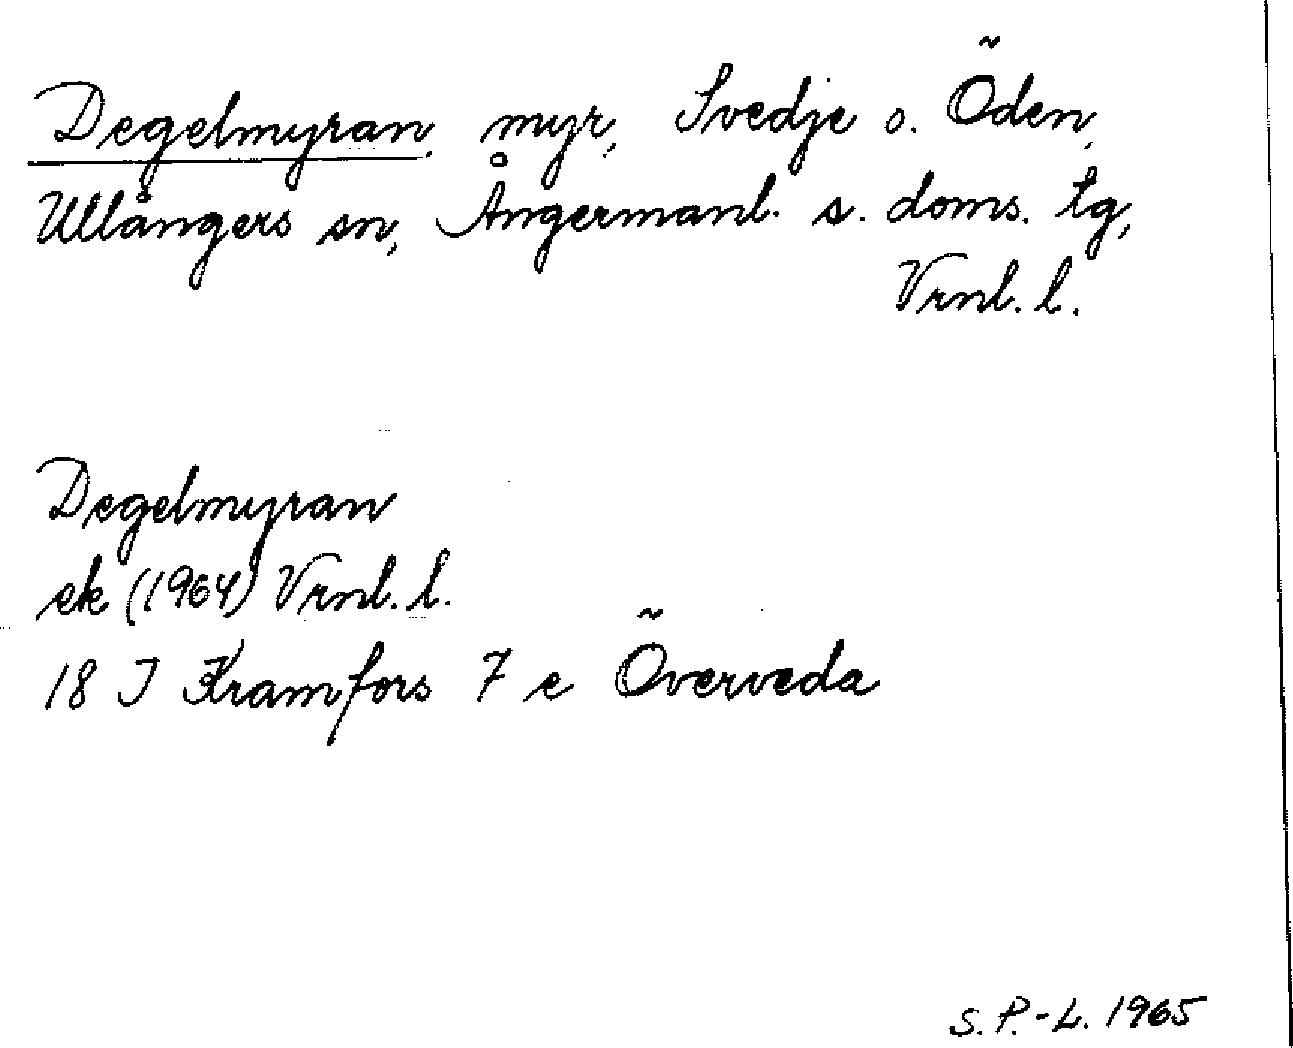 Degelmyran, myr, Svedje o. Öden,
Ullångers sn, Ångermanl. s. doms. tg,
Vrnl. l.
Degelmyran
ek (1964) Vrnl. l.
18 I Kramfors 7 e Överveda
S. P.-L. 1965